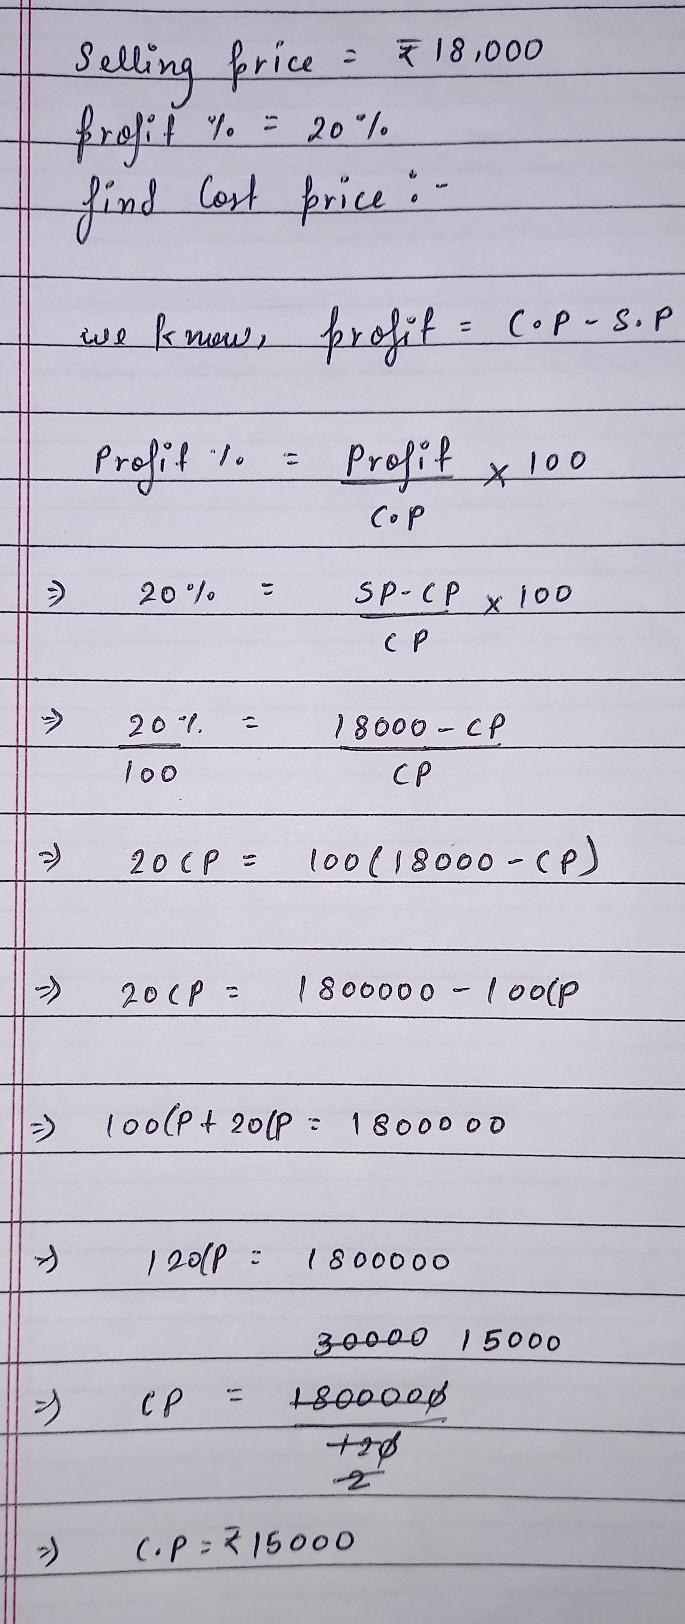 Selling price = ₹ 18,000
profit % = 20%
find Cost price :-
we know, profit = C.P - S.P
Profit % = Profit × 100
C.P
⇒ 20% = SP-CP × 100
CP
⇒ 20% = 18000 - CP
100 CP
⇒ 20CP = 100(18000 - CP)
⇒ 20CP = 1800000 - 100CP
⇒ 100CP + 20CP = 1800000
⇒ 120CP = 1800000
30000 15000
⇒ CP = 1800000
120
2
⇒ C.P = ₹15000